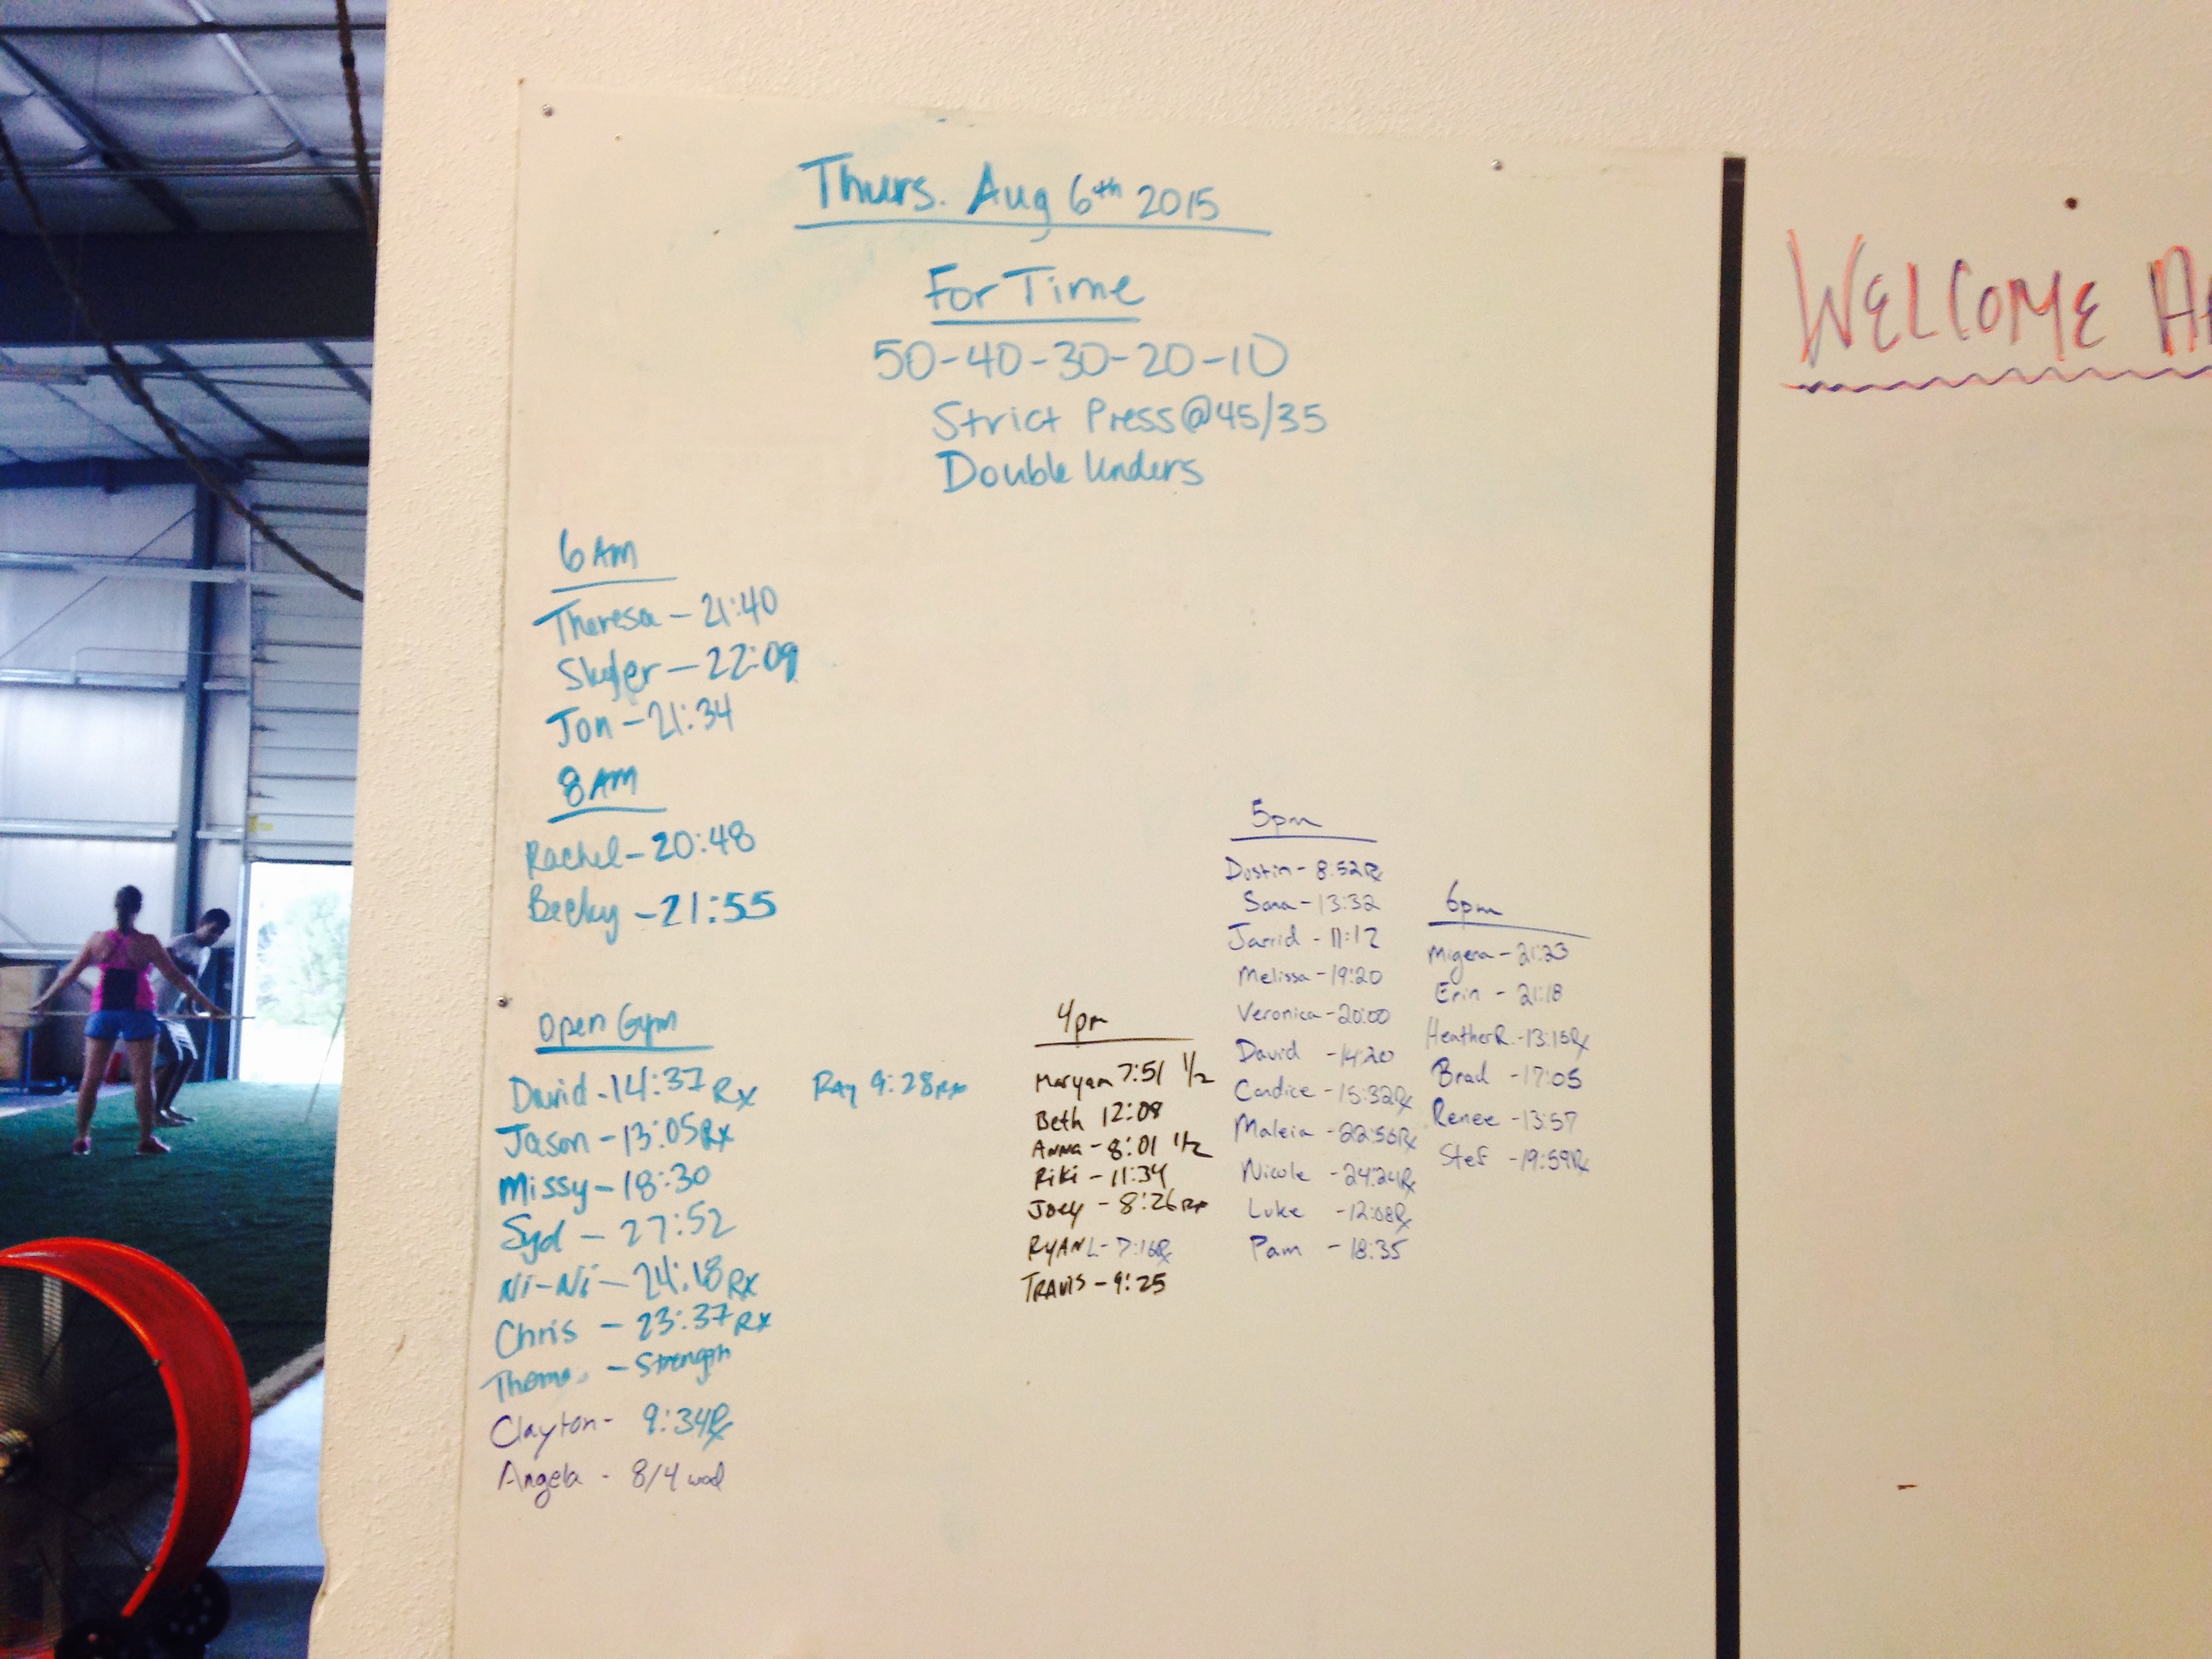 Thurs. Aug 6th 2015
For Time
50-40-30-20-10
Strict Press@45/35
Double Unders
6AM
Theresa - 21:40
Skyler - 22:09
Jon - 21:34
8AM
Rachel - 20:48
Becky - 21:55
Open Gym
David - 14:37 Rx
Jason - 13:05 Rx
Missy - 18:30
Syd - 27:52
Ni-Ni - 24:18 Rx
Chris - 23:37 Rx
- Strength
Clayton - 9:34 Rx
Angela - 8/4 wod
Ray 9:28 Rx
4pm
Maryam 7:51 1/2
Beth 12:08
Anna - 8:01 1/2
Riki - 11:34
Joey - 8:26 Rx
RYAN L - 7:16 Rx
TRAVIS - 9:25
5pm
Dustin - 8:52 Rx
Sara - 13:32
Jarrid - 11:12
Melissa - 19:20
Veronica - 20:00
David - 14:20
Candice - 15:32 Rx
Maleia - 22:56 Rx
Nicole - 24:24 Rx
Luke - 12:08 Rx
Pam - 18:35
6pm
Migena - 21:23
Erin - 21:18
Heather R. - 13:15 Rx
Brad - 17:05
Renee - 13:57
Stef - 19:59 Rx
WELCOME